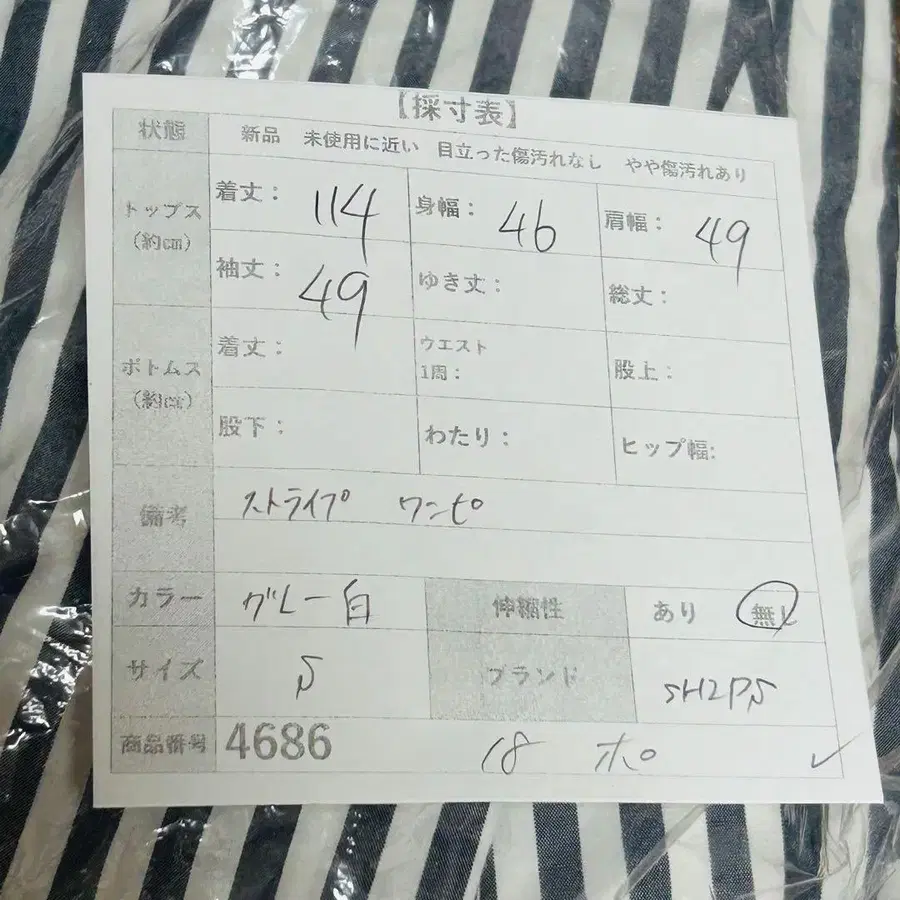 【採寸表】
状態 新品 未使用に近い 目立った傷汚れなし やや傷汚れあり
トップス
(約cm)
着丈： 114 身幅： 46 肩幅： 49
袖丈： 49 ゆき丈： 総丈：
ボトムス
(約cm)
着丈： ウエスト
1周： 股上：
股下： わたり： ヒップ幅:
備考 ストライプ ワンピ
カラー グレー 白 伸縮性 あり 無し
サイズ S ブランド SHIPS
商品番号 4686 18 ポ